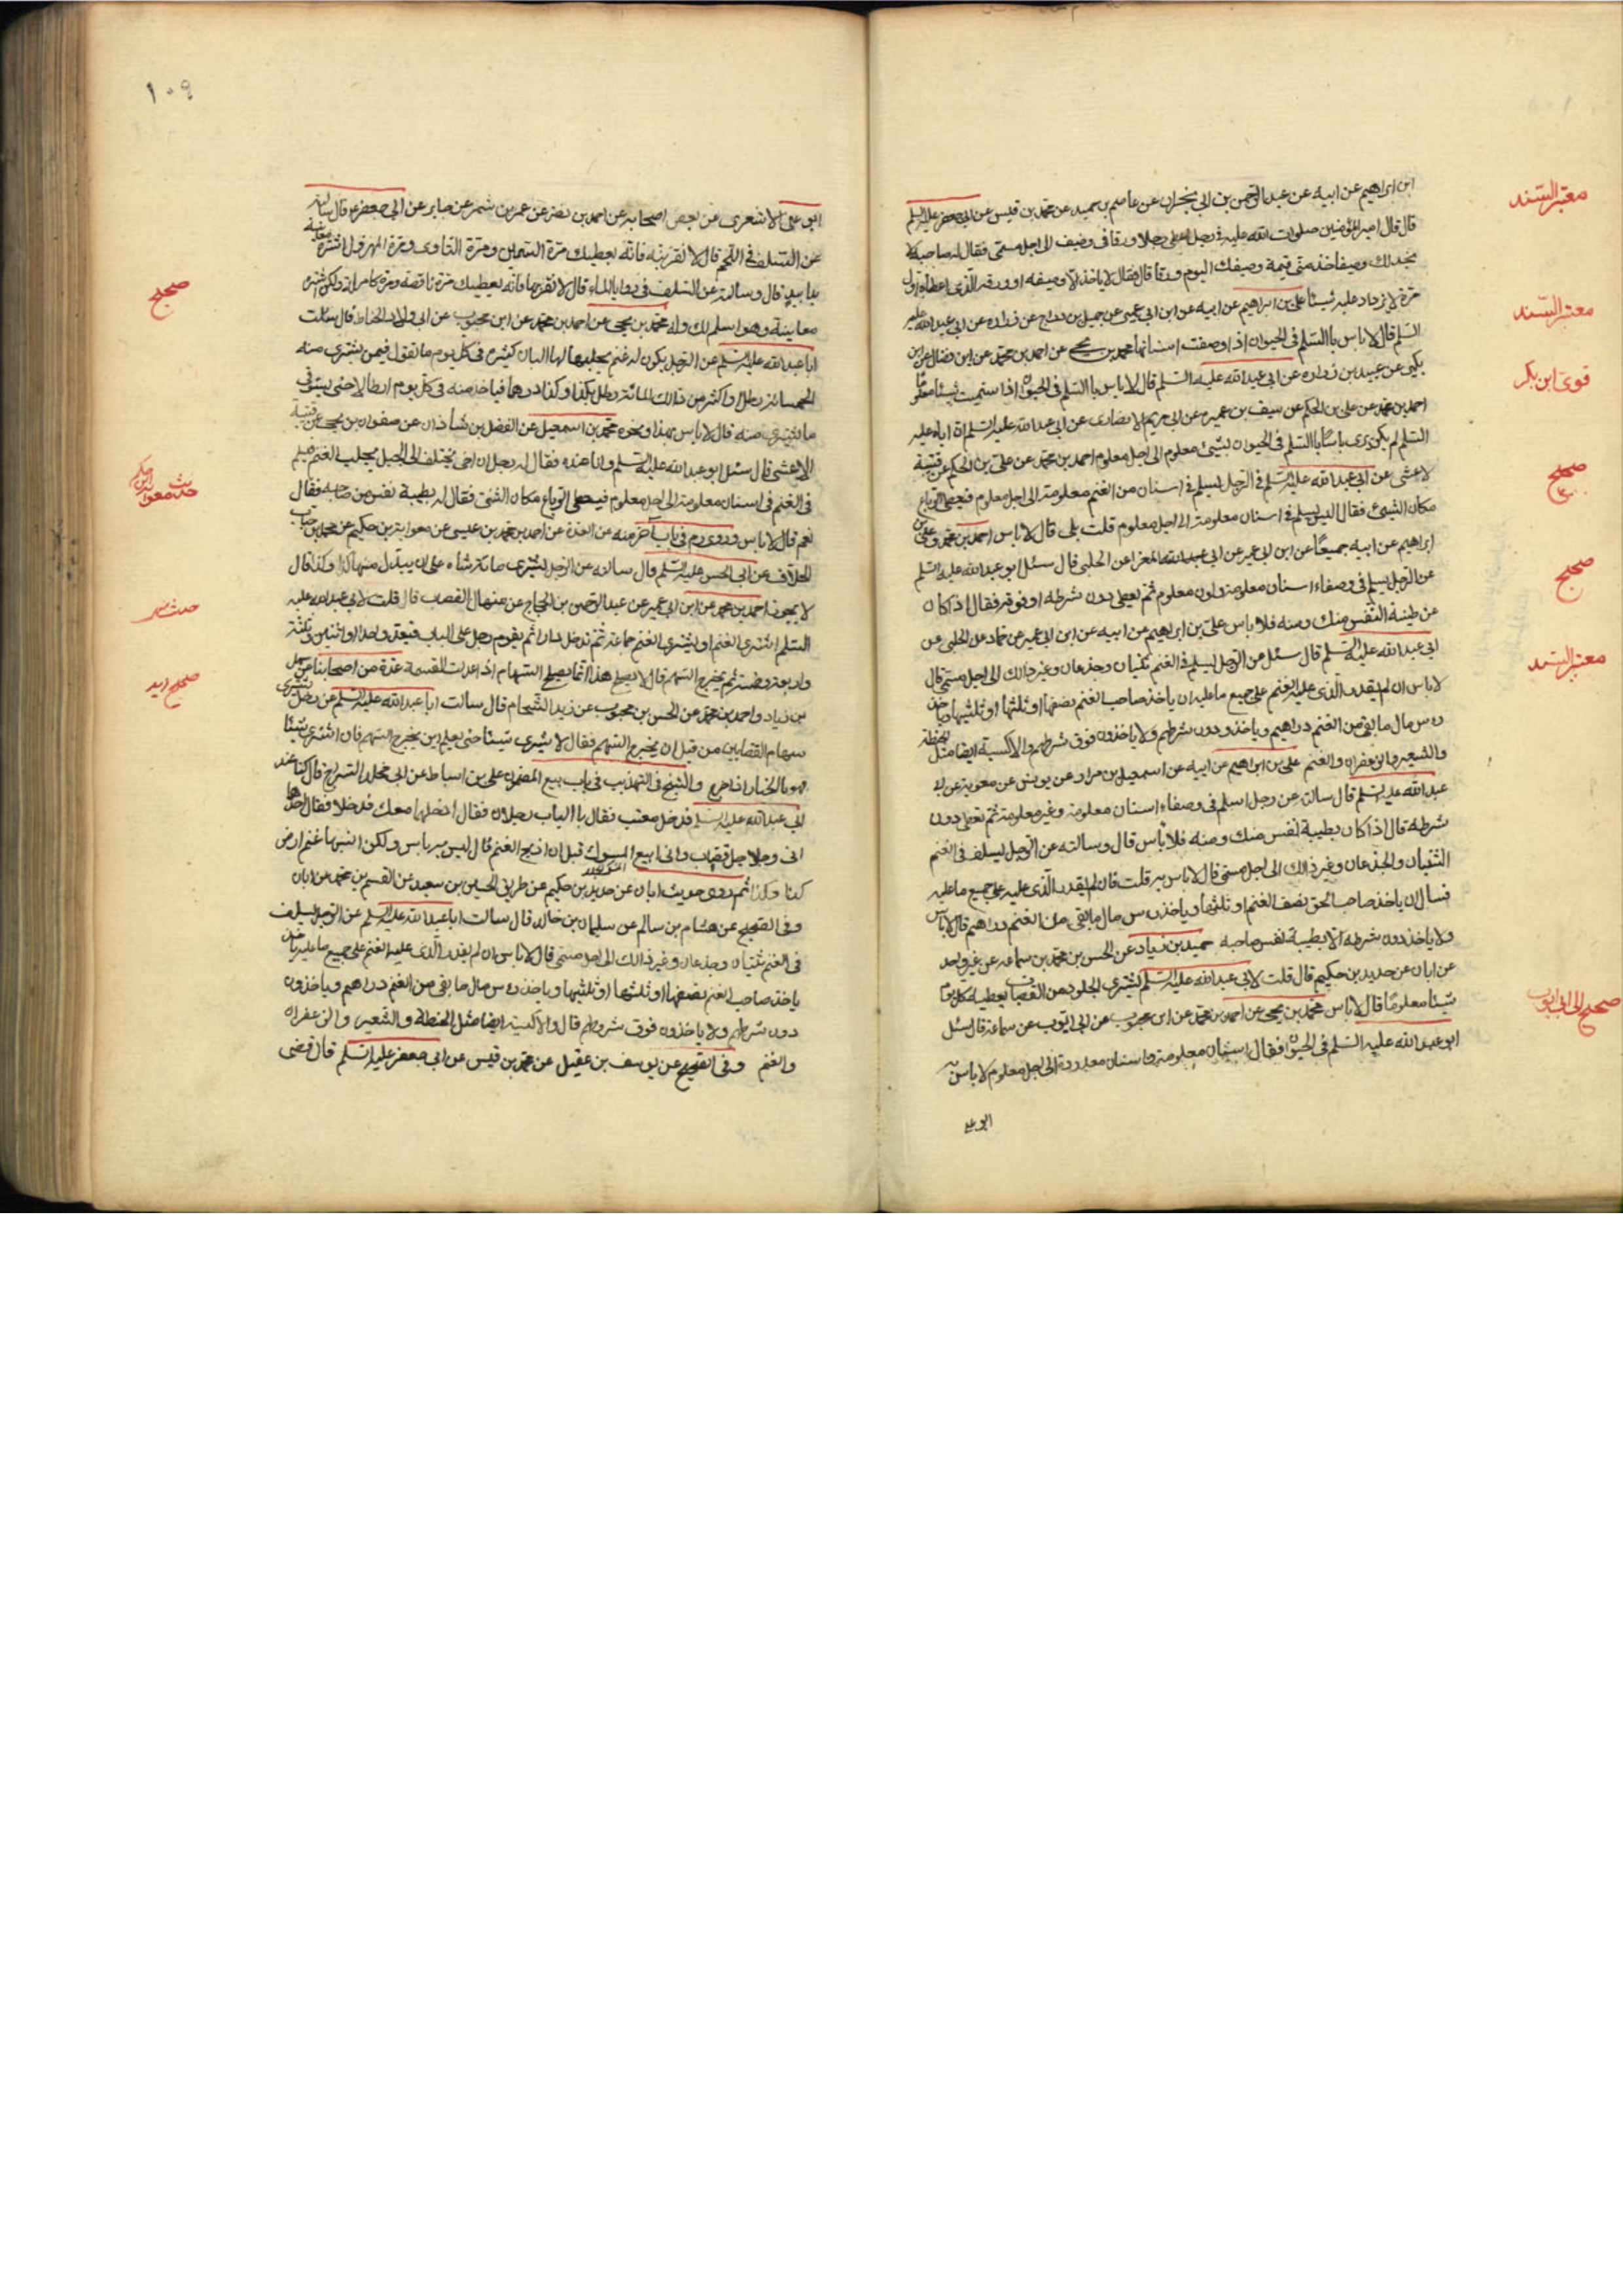 معتبر السند
ابن ابراهيم عن ابيه عن عبد الرحمن بن ابي نجران عن عاصم بن حميد عن محمد بن قيس عن ابي جعفر عليه السلم
قال قال امير المؤمنين صلوات الله عليه في رجل اعطى رجلا ورقا في وصيف الى اجل مسمى فقال له صاحبه لا
نجد لك وصيفا خذ مني قيمة وصيفك اليوم ورقا قال فقال لا ياخذ الا وصيفه او ورقه الذي اعطاه اول
معتبر السند
مرة لا يزداد عليه شيئا علي بن ابراهيم عن ابيه عن ابن ابي عمير عن جميل بن دراج عن زرارة عن ابي عبد الله عليه
السلم قال لا باس بالسلم في الحيوان اذا وصفت اسنانها محمد بن يحيى عن احمد بن محمد عن ابن فضال عن ابن
قوي ابن بكير
بكير عن عبيد بن زرارة عن ابي عبد الله عليه السلم قال لا باس بالسلم في الحيوان اذا سميت شيئا معلوما
احمد بن محمد عن علي بن الحكم عن سيف بن عميرة عن ابي مريم الانصاري عن ابي عبد الله عليه السلم ان اباه عليه
السلم لم يكن يرى باسا بالسلم في الحيوان بشيء معلوم الى اجل معلوم احمد بن محمد عن علي بن الحكم عن قتيبة
صحيح
الاعشى عن ابي عبد الله عليه السلم في الرجل يسلم في اسنان من الغنم معلومة الى اجل معلوم فيعطى الرباع
مكان الثني فقال اليس يسلم في اسنان معلومة الى اجل معلوم قلت بلى قال لا باس احمد بن محمد وعلي بن
ابراهيم عن ابيه جميعا عن ابن ابي عمير عن ابي المغرا عن الحلبي قال سئل ابو عبد الله عليه السلم
صحيح
عن الرجل يسلم في وصفاء اسنان معلومة ولون معلوم ثم يعطى دون شرطه او فوقه فقال اذا كان
عن طيبة النفس منك ومنه فلا باس علي بن ابراهيم عن ابيه عن ابن ابي عمير عن حماد عن الحلبي عن
معتبر السند
ابي عبد الله عليه السلم قال سئل عن الرجل يسلم في الغنم ثنيان وجذعان وغير ذالك الى اجل مسمى قال
لا باس ان لم يقدر الذي عليه الغنم على جميع ما عليه ان ياخذ صاحب الغنم نصفها او ثلثها او ثلثيها وياخذ
راس مال ما بقي من الغنم دراهم وياخذ دون شرطهم ولا ياخذون فوق شرطهم والاكسية ايضا مثل الحنطة
والشعير والزعفران والغنم علي بن ابراهيم عن ابيه عن اسمعيل بن مرار عن يونس عن معوية عن ابي
عبد الله عليه السلم قال سالته عن رجل اسلم في وصفاء اسنان معلومة وغير معلومة ثم يعطى دون
شرطه قال اذا كان بطيبة نفس منك ومنه فلا باس قال وسالته عن الرجل يسلف في الغنم
الثنيان والجذعان وغير ذالك الى اجل مسمى قال لا باس به قلت فان لم يقدر الذي عليه على جميع ما عليه
فسال ان ياخذ صاحب الحق نصف الغنم او ثلثها وياخذ راس مال ما بقي من الغنم دراهم قال لا باس
ولا ياخذ دون شرطه الا بطيبة نفس صاحبه حميد بن زياد عن الحسن بن محمد بن سماعة عن غير واحد
عن ابان عن حديد بن حكيم قال قلت لابي عبد الله عليه السلم يشتري الجلود من القصاب يعطيه كل يوم
صحيح الى ابي ايوب
شيئا معلوما قال لا باس محمد بن يحيى عن احمد بن محمد عن ابن محبوب عن ابي ايوب عن سماعة قال سئل
ابو عبد الله عليه السلم في الحيوان فقال اسنان معلومة واسنان معدودة الى اجل معلوم لا باس به
ابو علي
١٠٩
ابو علي الاشعري عن بعض اصحابه عن احمد بن نضر عن عمر بن شمر عن جابر عن ابي جعفر ع قال سالته
عن السلف في اللحم قال لا تقربنه فانه يعطيك مرة السمين ومرة التاوي ومرة المهزول اشتره معاينة
يدا بيد قال وسالته عن السلف في روايا الماء قال لا تقربها فانه يعطيك مرة ناقصة ومرة كاملة ولكن اشتره
صحيح
معاينة وهو اسلم لك وله محمد بن يحيى عن احمد بن محمد عن ابن محبوب عن ابي ولاد الحناط قال سئلت
ابا عبد الله عليه السلم عن الرجل يكون له غنم يحلبها لها البان كثيرة في كل يوم ما تقول فيمن يشتري منه
الخمسمائة رطل او اكثر من ذالك المائة رطل بكذا وكذا درهما فياخذ منه في كل يوم ارطالا حتى يستوفي
ما يشتري منه قال لا باس بهذا ونحوه محمد بن اسمعيل عن الفضل بن شاذان عن صفوان بن يحيى عن قتيبة
الاعشى قال سئل ابو عبد الله عليه السلم وانا عنده فقال له رجل ان اخي يختلف الى الجبل يجلب الغنم فيسلم
في الغنم في اسنان معلومة الى اجل معلوم فيعطى الرباع مكان الثني فقال له بطيبة نفس من صاحبه فقال
نعم قال لا باس وروى ره في باب اخر منه عن العدة عن احمد بن محمد بن عيسى عن معوية بن حكيم عن محمد بن حباب
الجلاب عن ابي الحسن عليه السلم قال سالته عن الرجل يشتري مائة شاة على ان يبدل منها كذا وكذا قال
لا يجوز احمد بن محمد عن ابن ابي عمير عن عبد الرحمن بن الحجاج عن منهال القصاب قال قلت لابي عبد الله عليه
السلم اشتري الغنم او يشتري الغنم جماعة ثم تدخل دارا ثم يقوم رجل على الباب فيعد واحدا واثنين وثلثة
واربعة وخمسة ثم يخرج السهم قال لا يصلح هذا انما يصلح السهام اذا عدلت القسمة عدة من اصحابنا عن سهل
بن زياد واحمد بن محمد عن الحسن بن محبوب عن زيد الشحام قال سالت ابا عبد الله عليه السلم عن رجل يشتري
سهام القصابين من قبل ان يخرج السهم فقال لا يشتري شيئا حتى يعلم اين يخرج السهم فان اشترى شيئا
فهو بالخيار اذا خرج والشيخ في التهذيب في باب بيع المضمون علي بن اسباط عن ابي مخلد السراج قال كنا عند
ابي عبد الله عليه السلم فدخل معتب فقال بالباب رجلان فقال ادخلهما معك فدخلا فقال احدهما
اني رجل قصاب واني ابيع المسوك قبل ان اذبح الغنم قال ليس به باس ولكن انسبها غنم ارض
كذا وكذا ثم روى حديث ابان عن حديد بن حكيم عن طريق الحسين بن سعيد عن القسم بن محمد عن ابان
وفي الصحيح عن هشام بن سالم عن سليمان بن خالد قال سالت ابا عبد الله عليه السلم عن الرجل يسلف
في الغنم ثنيان وجذعان وغير ذالك الى اجل مسمى قال لا باس ان لم يقدر الذي عليه الغنم على جميع ما عليه
ياخذ صاحب الغنم نصفها او ثلثها او ثلثيها وياخذ راس مال ما بقي من الغنم دراهم وياخذون
دون شرطهم ولا ياخذون فوق شروطهم قال والاكسية ايضا مثل الحنطة والشعير والزعفران
والغنم وفي الصحيح عن يوسف بن عقيل عن محمد بن قيس عن ابي جعفر عليه السلم قال قضى